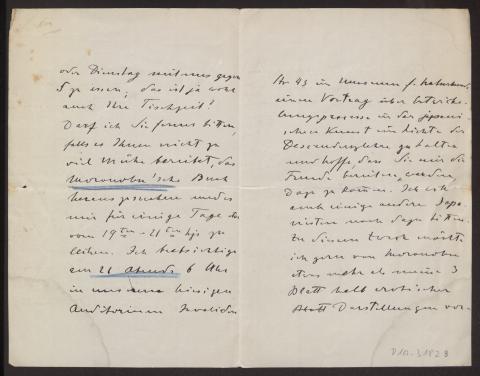 oder Dienstag mit uns gegen
5 zu essen; das ist ja wohl
auch Ihre Tischzeit!
Darf ich Sie ferner bitten,
falls es Ihnen nicht zu
viel Mühe bereitet, das
Moronobu'sche Buch
herauszusuchen und es
mir für einige Tage
vom 19ten - 21ten hj zu
leihen. Ich beabsichtige
am 21 Abends 6 Uhr
in hiesigen
Auditorium Invaliden
Str 43 im Museum f. Naturkunde
einen Vortrag über Entwicke-
lungsprozesse in der japani-
schen Kunst im Lichte der
Descendenzlehre zu halten
und hoffe, dass Sie mir die
Freude bereiten werden,
dazu zu kommen. Ich will
auch einige andere Japa-
nisten noch dazu bitten.
Zu diesem Zweck möchte
ich gern von Moronobu
etwas mehr als meine 3
Blatt halb erotischer
Darstellungen vor-